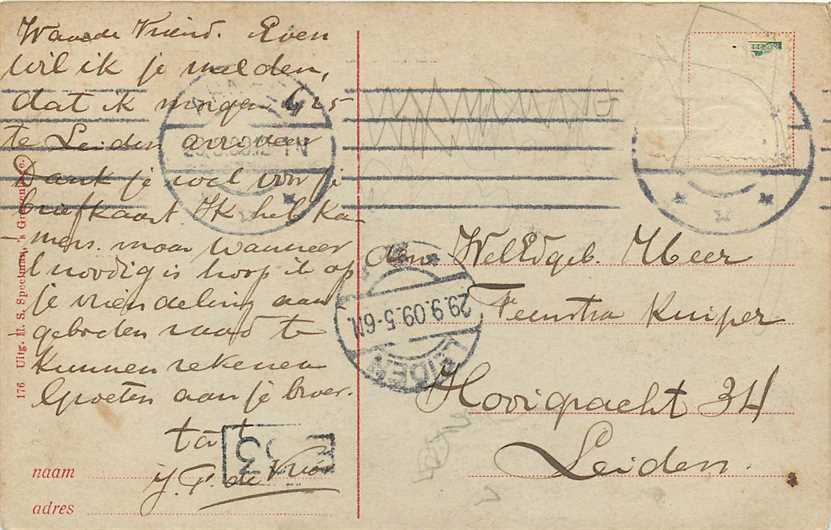 Waarde Vriend. Even
wil ik je melden,
dat ik morgen 4,25
te Leiden arriveer
Dank je wel voor je
briefkaart. Ik heb ka-
mers. maar wanneer
't noodig is hoop ik op
je vriendelijk aan
geboden raad te
kunnen rekenen
Groeten aan je broer.
tàt
J. P. de Vries
naam
adres
176 Uitg. H. S. Speelman, 's Gravenhage.
29.9.09.5-6N.
LEIDEN
Den WelEdgeb. Heer
Feenstra Kuiper
Hooigracht 34
Leiden.